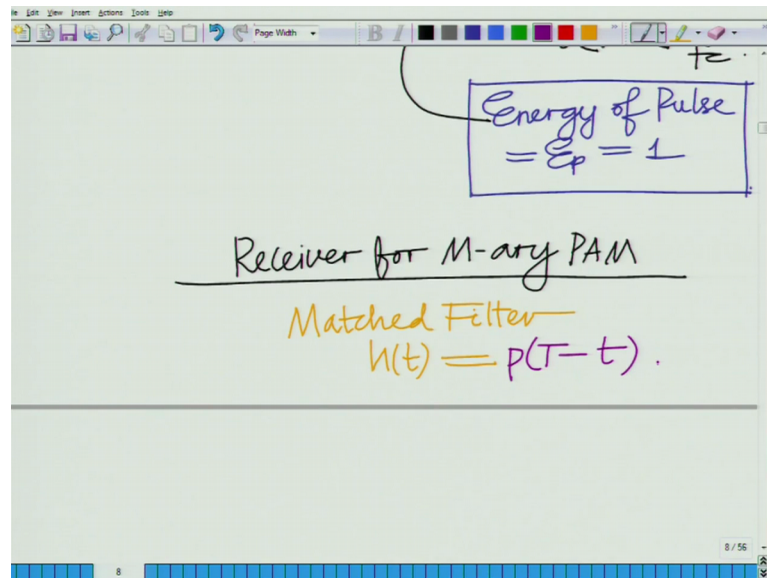 Edit View Insert Actions Tools Help
Page Width
B I
Energy of Pulse
= Ep = 1
Receiver for M-ary PAM
Matched Filter
h(t) = p(T-t).
8/56
8